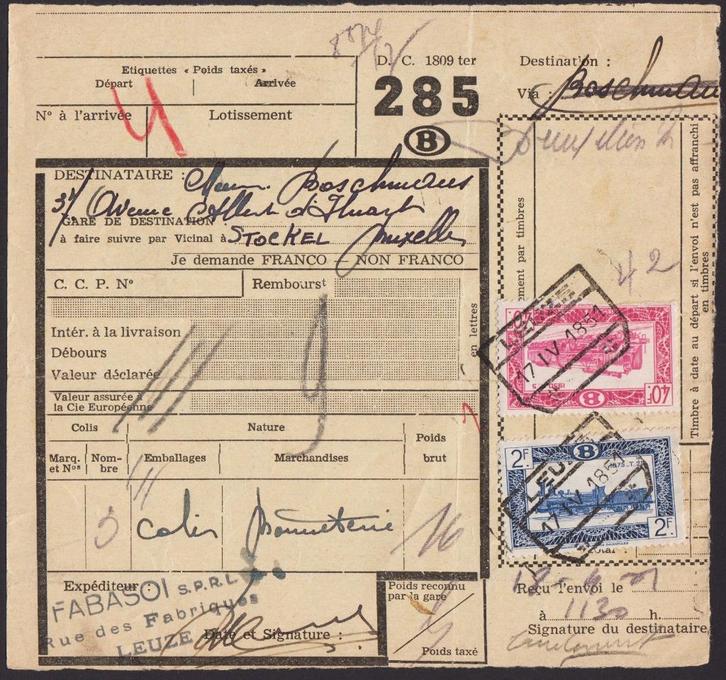 Etiquettes « Poids taxés »
Départ Arrivée
N° à l'arrivée Lotissement
D. C. 1809 ter
285
B
Destination :
Via : Boschmans
DESTINATAIRE : Boschmans
37 Avenue Albert d'Huart
GARE DE DESTINATION
à faire suivre par Vicinal à STOCKEL Bruxelles
Je demande FRANCO — NON FRANCO
C. C. P. N° Rembourst
Intér. à la livraison
Débours
Valeur déclarée
Valeur assurée à
la Cie Européenne
en lettres
9
Colis Nature Poids
brut
Marq.
et Nos Nom-
bre Emballages Marchandises
3 colis Bonneterie 16
Expéditeur :
FABASOI S.P.R.L.
Rue des Fabriques
LEUZE
Date et Signature :
Poids reconnu
par la gare
Poids taxé
ment par timbres
Timbre à date au départ si l'envoi n'est pas affranchi
en timbres
42
40F
B
LEUZE
17 IV 1851
2F
B
2F
LEUZE
17 IV 1851
Total :
Reçu l'envoi le
à 1130 h.
Signature du destinataire